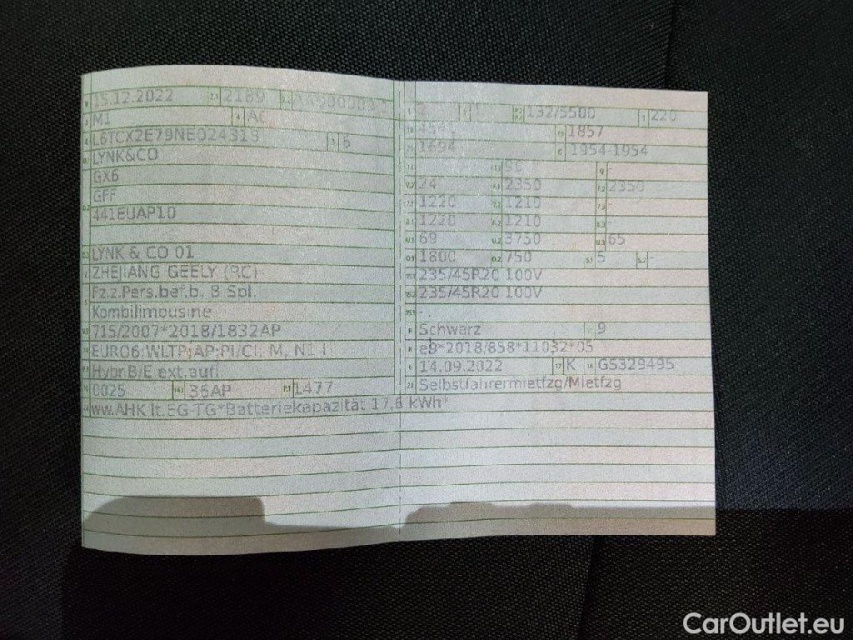 15.12.2022 2189
M1 AC
L6TCX2E79NE024313 6
LYNK&CO
GX6
GFF
441EUAP10
LYNK & CO 01
ZHEJIANG GEELY (RC)
Fz.z.Pers.bef.b. 8 Spl.
Kombilimousine
715/2007*2018/1832AP
EURO6;WLTP;AP;PI/CI; M, N1 I
Hybr.B/E ext.aufl
0025 36AP 1477
ww.AHK lt.EG-TG*Batteriekapazität 17,6 kWh*
132/5500 220
4541 1857
1694 1954-1954
90
24 2350 2350
1220 1210
1220 1210
69 3750 65
1800 750 5 -
235/45R20 100V
235/45R20 100V
Schwarz 9
e9*2018/858*11032*05
14.09.2022 K GS329495
Selbstfahrermietfzg/Mietfzg
CarOutlet.eu